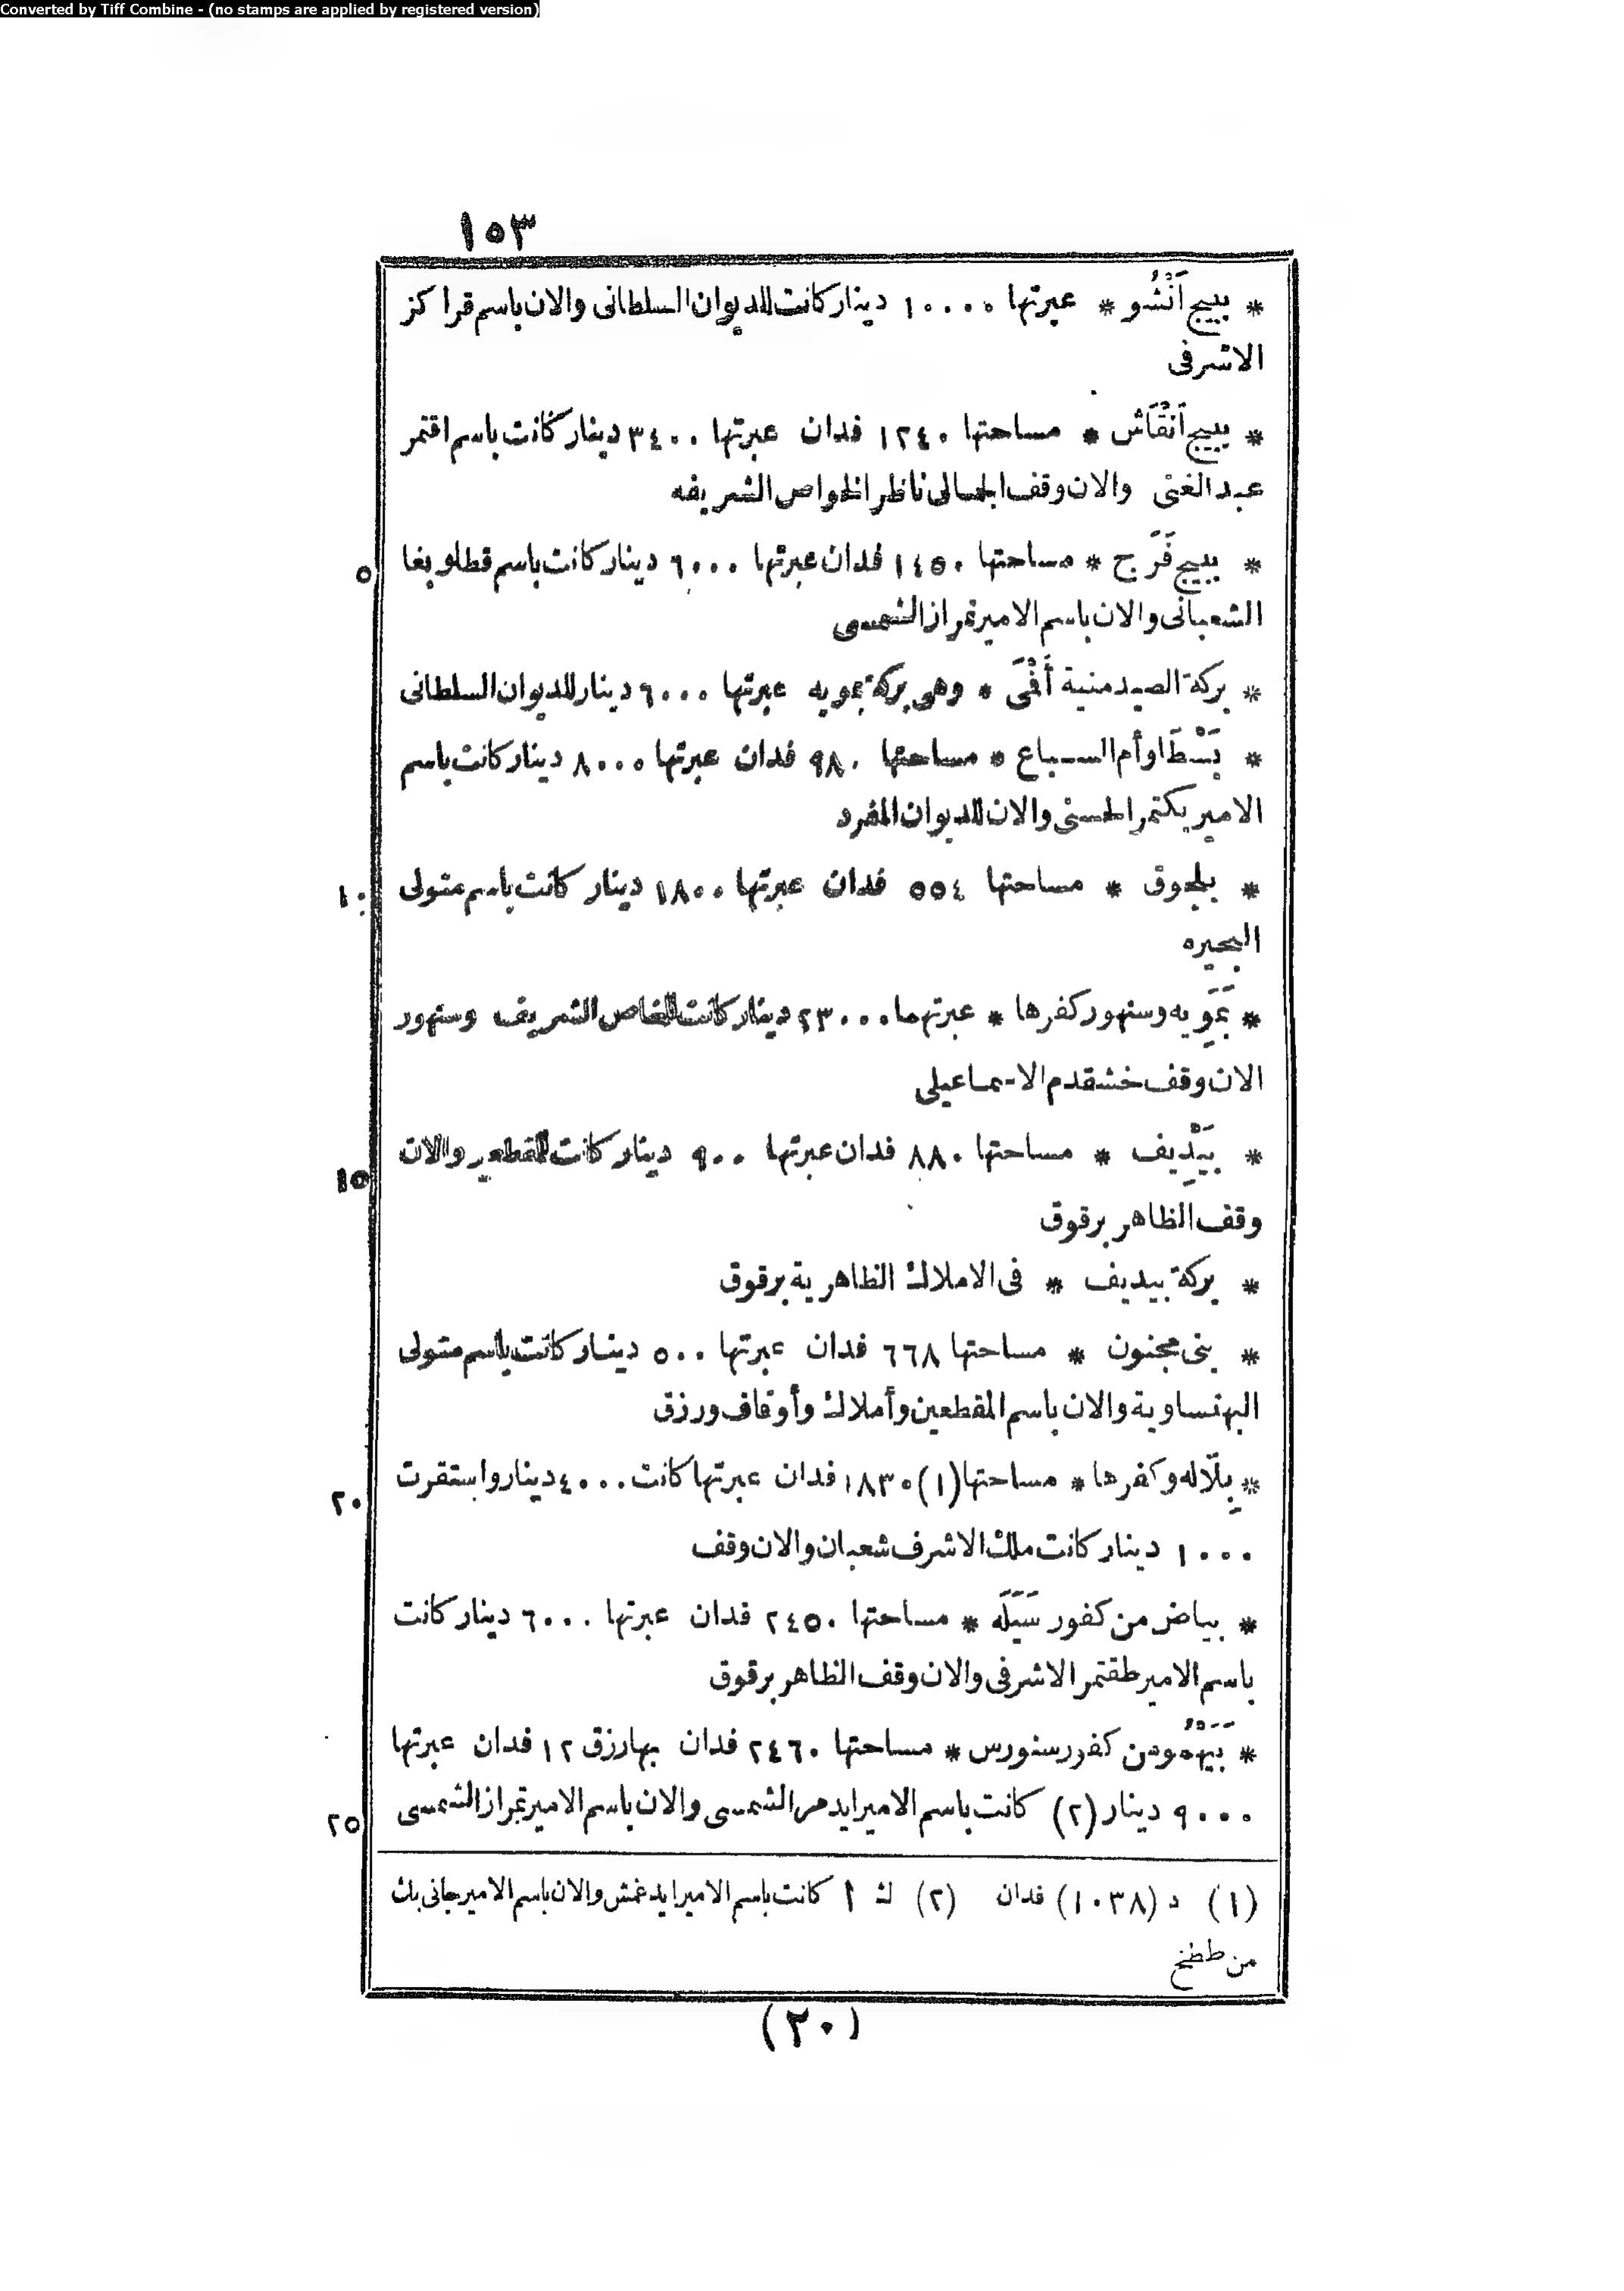 Converted by Tiff Combine - (no stamps are applied by registered version)
١٥٣
* ببيج اَنْشُو * عبرتها ١٠٠٠٠ دينار كانت للديوان السلطانى والان باسم قراكز
الاشرفى
* ببيج اَنْقَاش * مساحتها ١٢٤٠ فدان عبرتها ٣٤٠٠ دينار كانت باسم اقتمر
عبد الغنى والان وقف الجمالى ناظر الخواص الشريفه
* ببيج فَرَج * مساحتها ١٤٥٠ فدان عبرتها ٦٠٠٠ دينار كانت باسم قطلوبغا ٥
الشعبانى والان باسم الامير تمراز الشمسى
* بركة الصيد منية أَفْنَى * وهى بركة بمويه عبرتها ٦٠٠٠ دينار للديوان السلطانى
* بَسْطَا وأم السباع * مساحتها ٩٨٠ فدان عبرتها ٨٠٠٠ دينار كانت باسم
الامير بكتمر الحسنى والان للديوان المفرد
* بلجوق * مساحتها ٥٥٤ فدان عبرتها ١٨٠٠ دينار كانت باسم متولى ١٠
البحيره
* بَمَوِيه وسنهور كفرها * عبرتهما ٢٣٠٠٠ دينار كانت للخاص الشريف وسنهور
الان وقف خشقدم الاسماعيلى
* بَيْدِيف * مساحتها ٨٨٠ فدان عبرتها ٩٠٠ دينار كانت والان ١٥
وقف الظاهر برقوق
* بركة بيديف * فى الاملاك الظاهرية برقوق
* بنى مجنون * مساحتها ٦٦٨ فدان عبرتها ٥٠٠ دينار كانت باسم متولى
البهنساوية والان باسم المقطعين وأملاك وأوقاف ورزق
* بِلّاله وكفرها * مساحتها (١) ١٨٣٠ فدان عبرتها كانت ٤٠٠٠ دينار واستقرت ٢٠
١٠٠٠ دينار كانت ملك الاشرف شعبان والان وقف
* بياض من كفور سَيَلَه * مساحتها ٢٤٥٠ فدان عبرتها ٦٠٠٠ دينار كانت
باسم الامير طقتمر الاشرفى والان وقف الظاهر برقوق
* بَيَهْمُو من كفور سنورس * مساحتها ٢٤٦٠ فدان بها رزق ١٢ فدان عبرتها
٩٠٠٠ دينار (٢) كانت باسم الامير ايدمر الشمسى والان باسم الامير تمراز الشمسى ٢٥
(١) د (١٠٣٨) فدان (٢) ك أ كانت باسم الامير ايدغمش والان باسم الامير جانى بك
من ططخ
(٢٠)